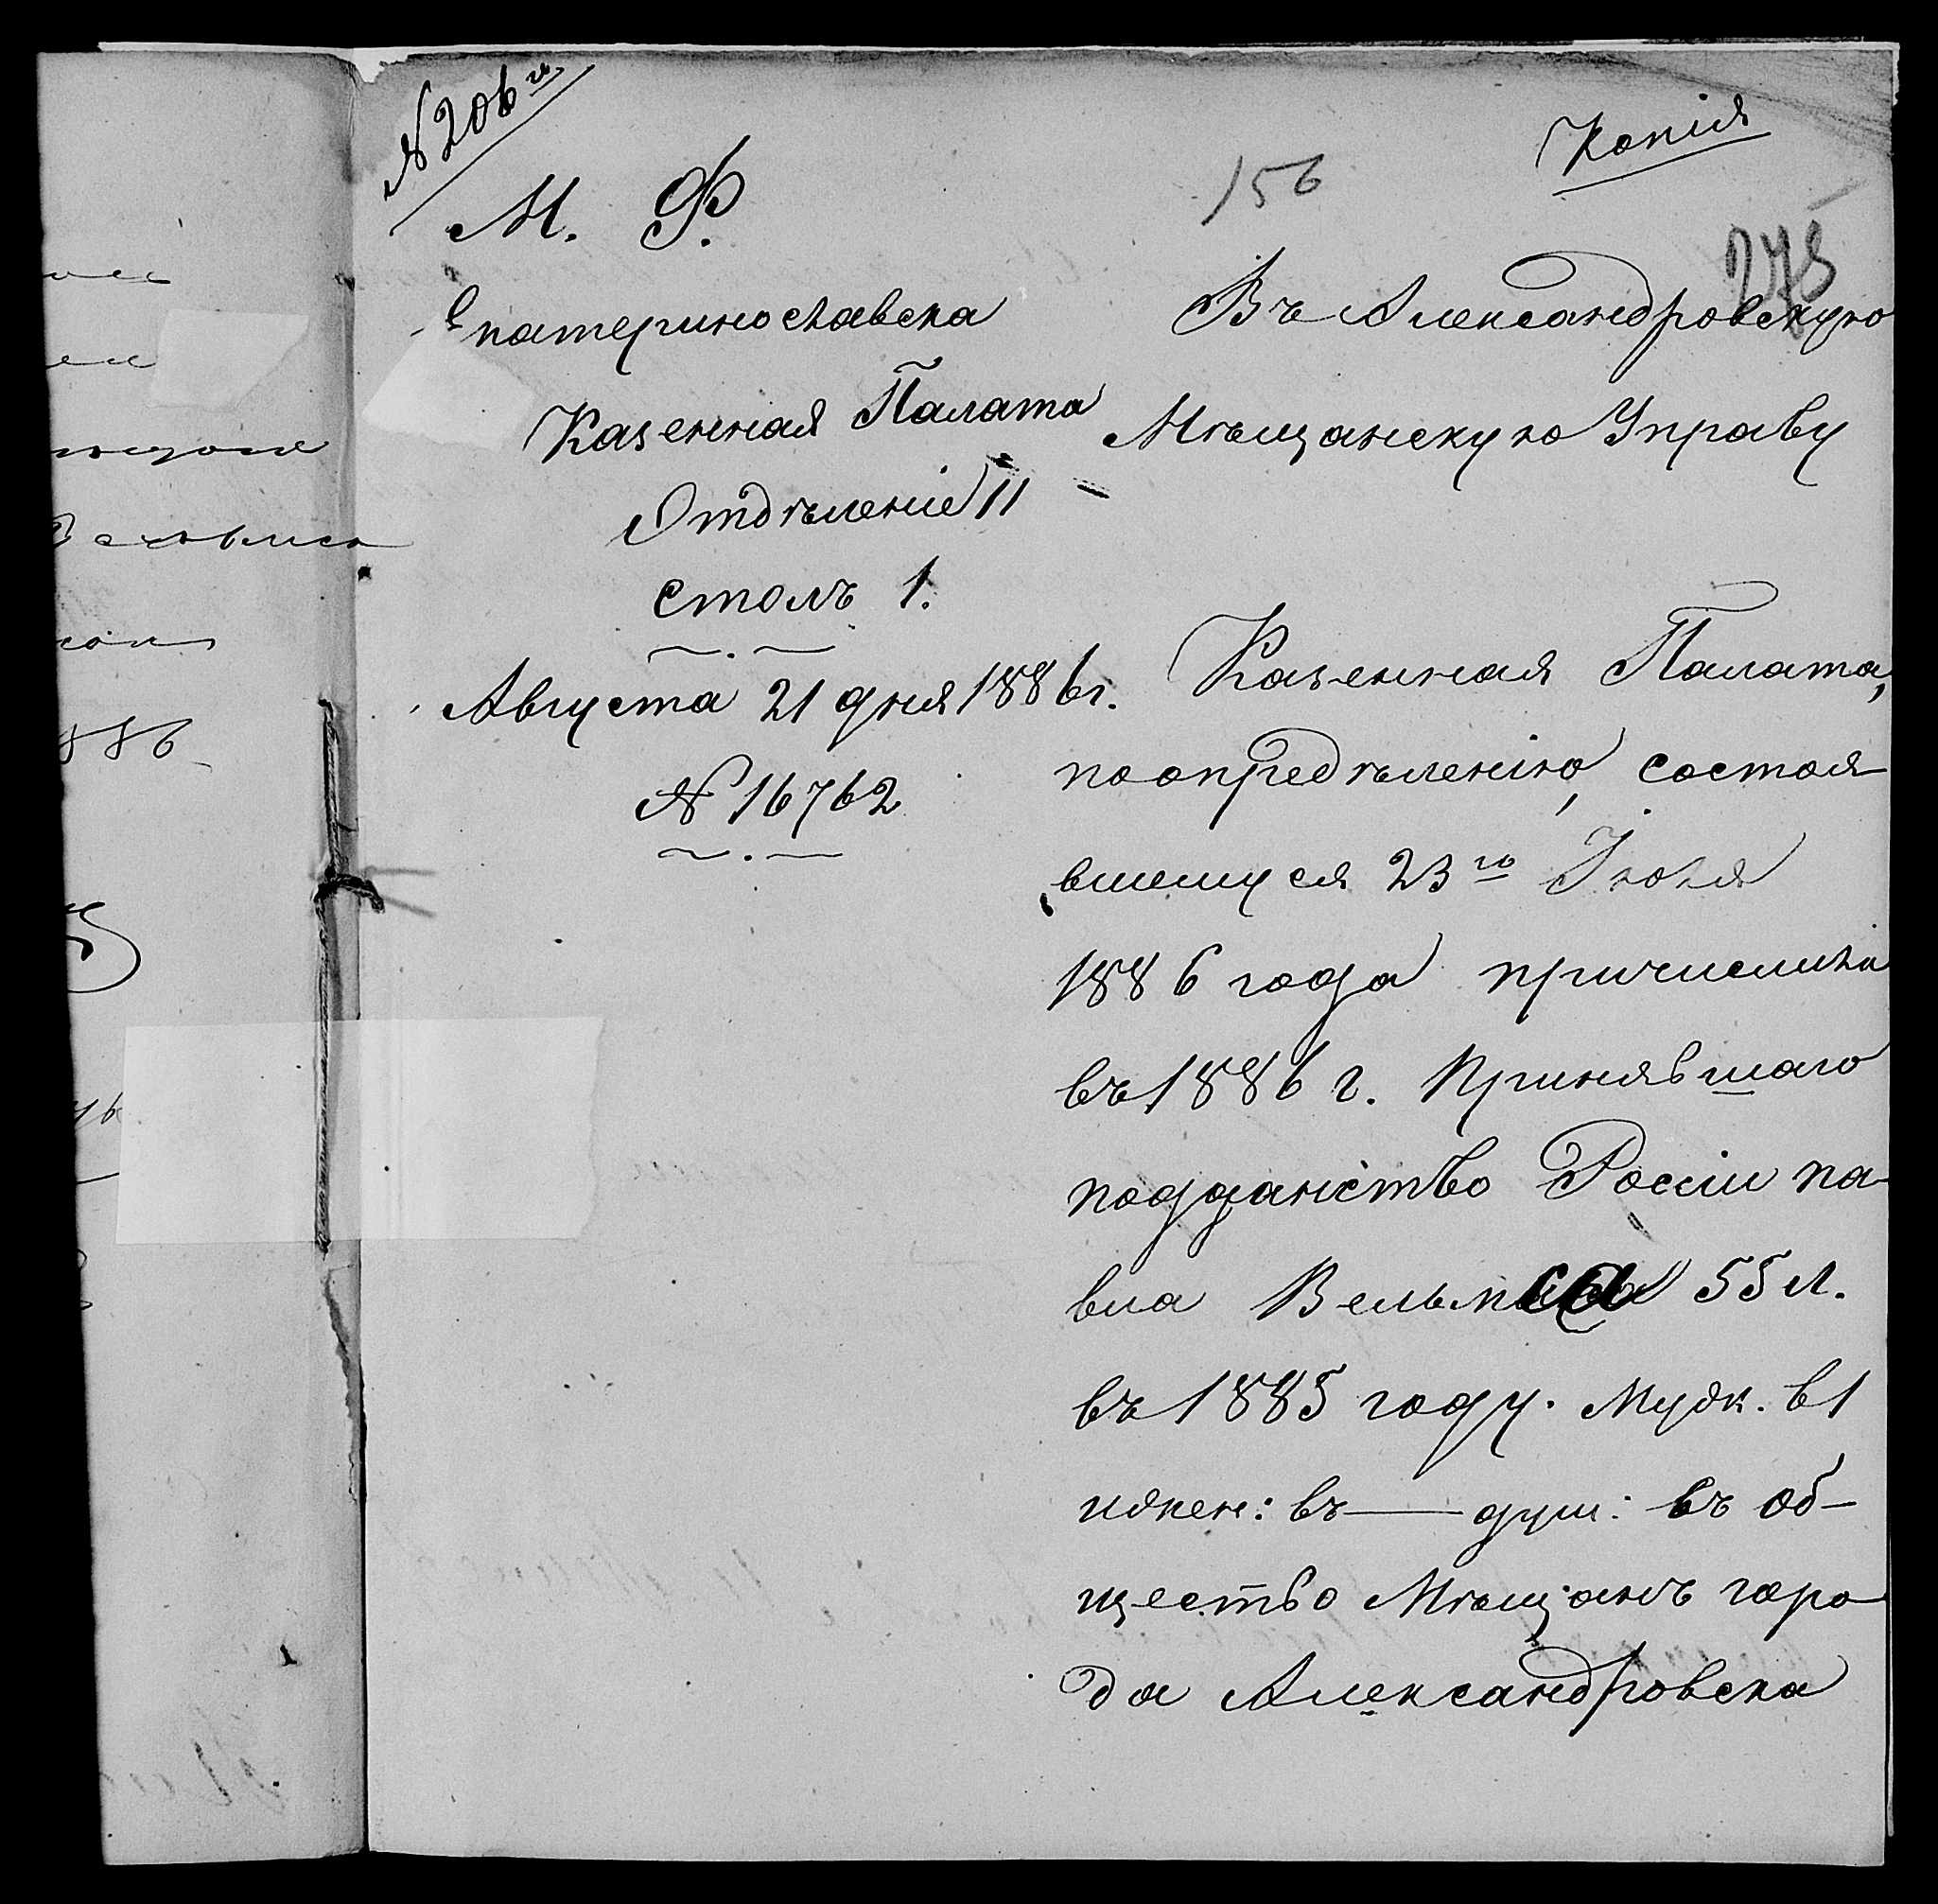 № 206 го
Копія
156
275
М. Ф.
Екатеринославска
Казенная Палата
Отдѣленіе II
столъ 1.
Августа 21 дня 1886 г.
№ 16762
Въ Александровскую
Мѣщанскую Управу
Казенная Палата,
по опредѣленію, состоя
вшемуся 23го Іюля
1886 года причислила
въ 1886 г. принявшаго
подданство Россіи па-
вла 55 л.
въ 1885 году. Мужк. в 1
и женс: въ — душ: въ об-
щество Мѣщанъ горо
да Александровска
886